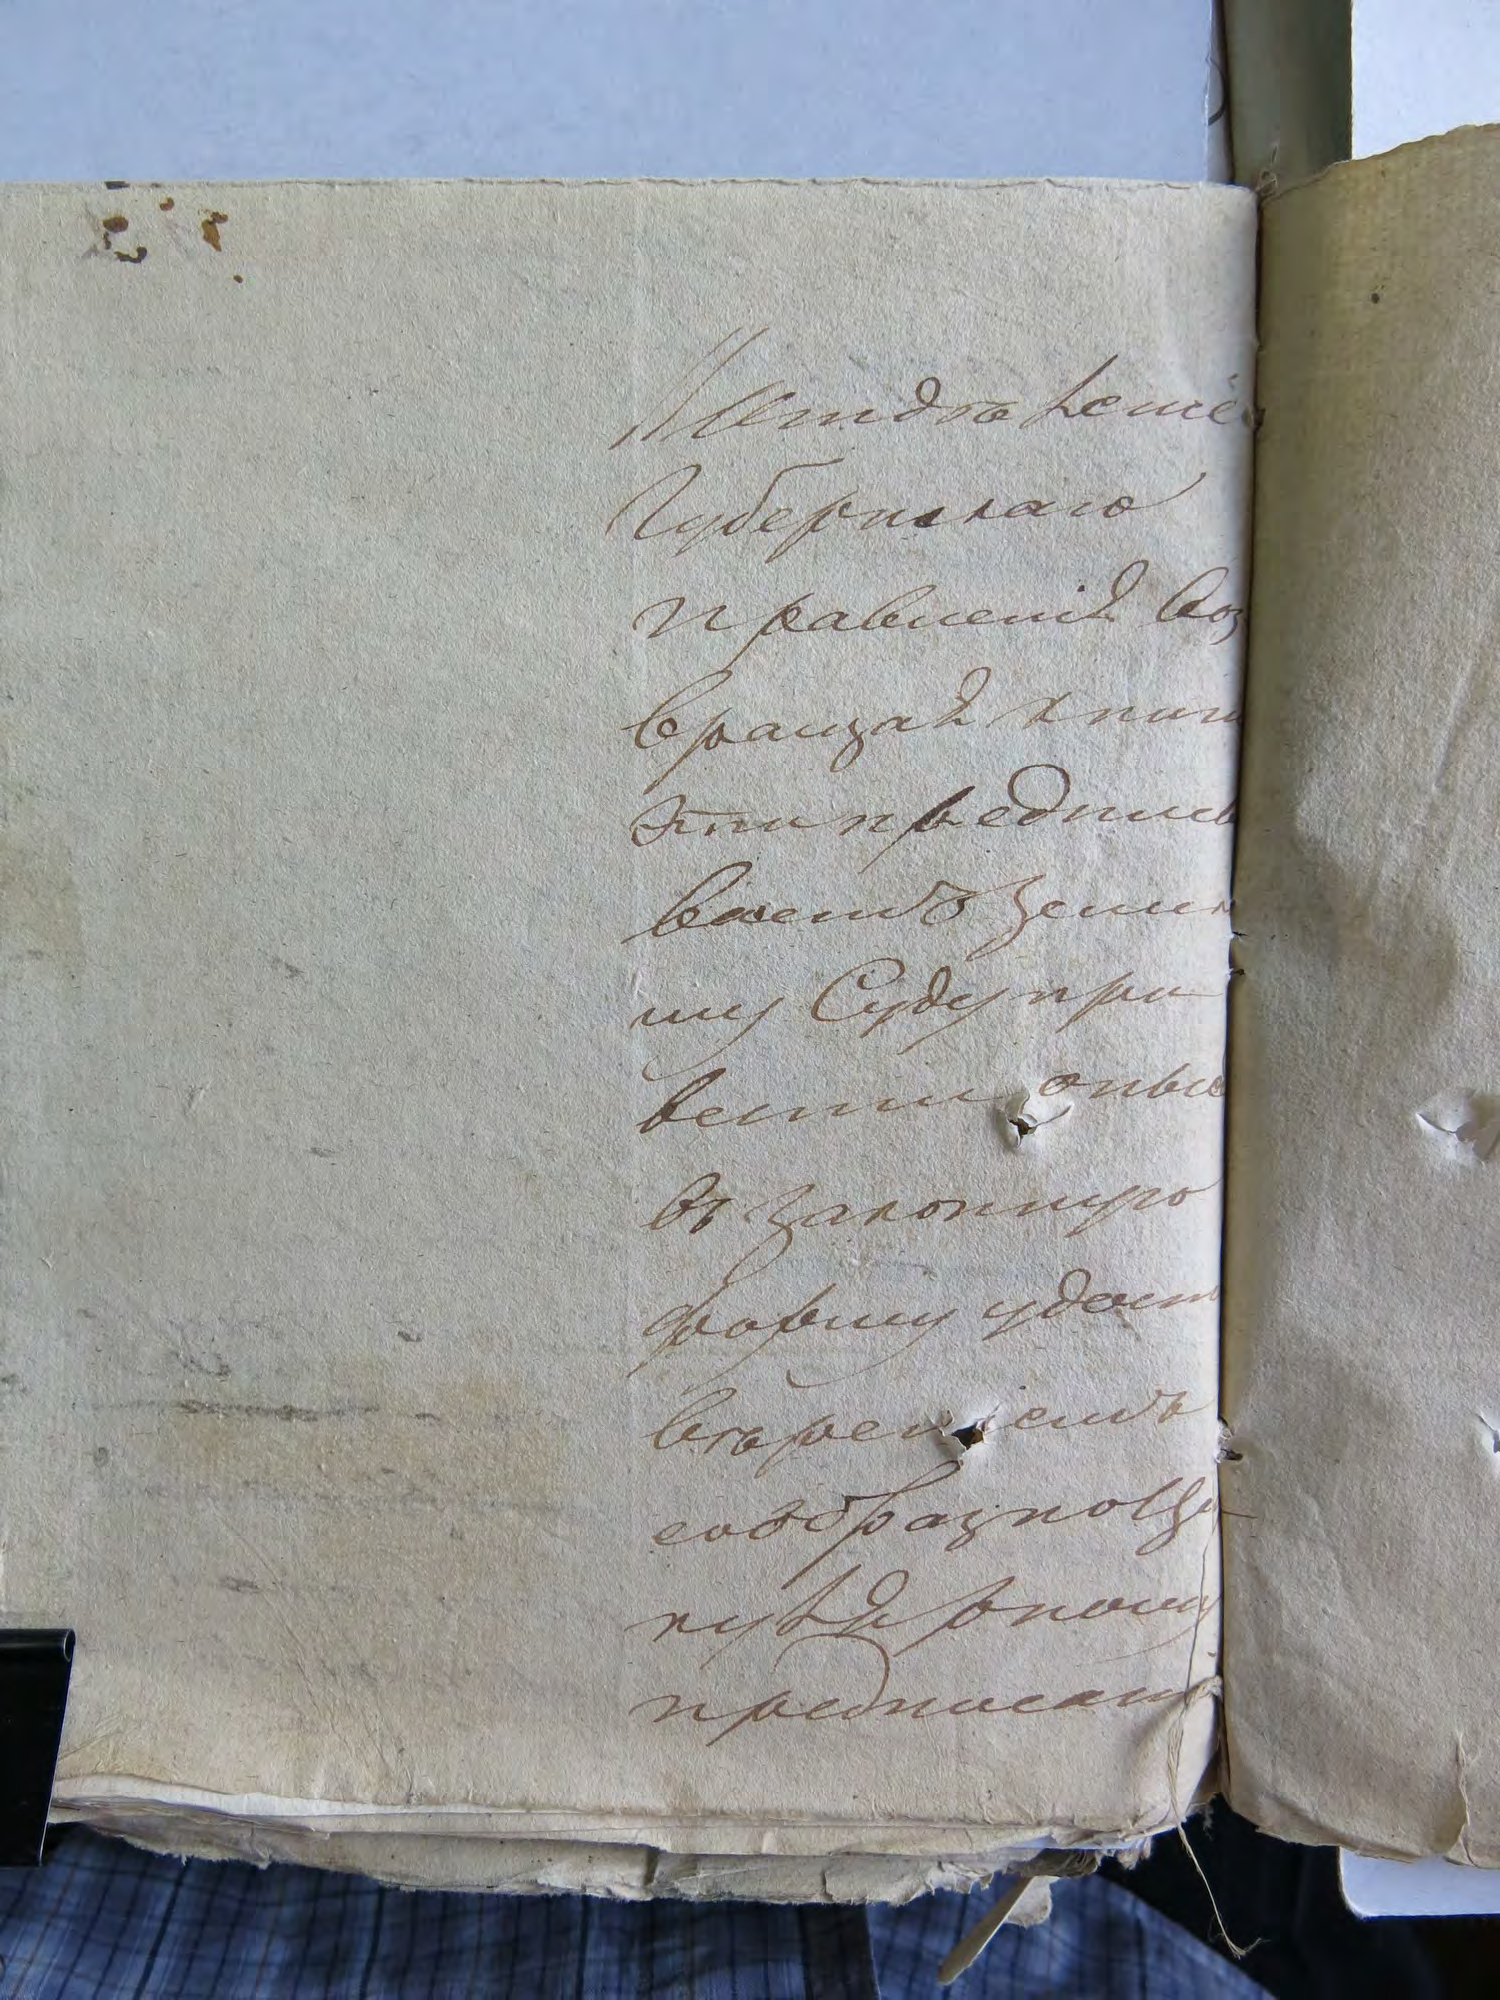 Отдѣленіе
Губернскаго
правленія воз
вращая книги
эти предписы
ваетъ Земск
му Суду при
вести оныя
въ законную
форму удост
вѣреніемъ
сообразно Ци
куляр оному
предписані